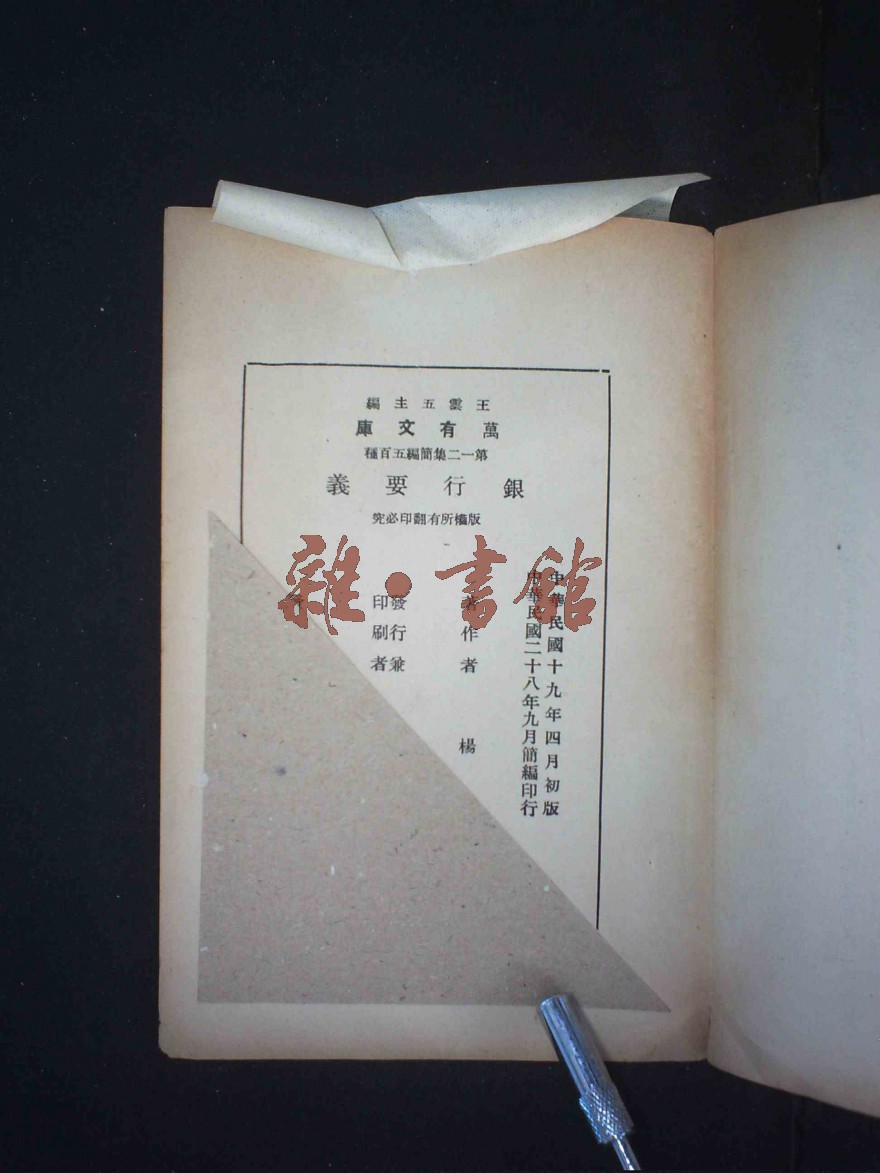 王雲五主編
萬有文庫
第一二集簡編五百種
銀行要義
版權所有翻印必究
中華民國十九年四月初版
中華民國二十八年九月簡編印行
著作者 楊
發行兼
印刷者
雜·書館